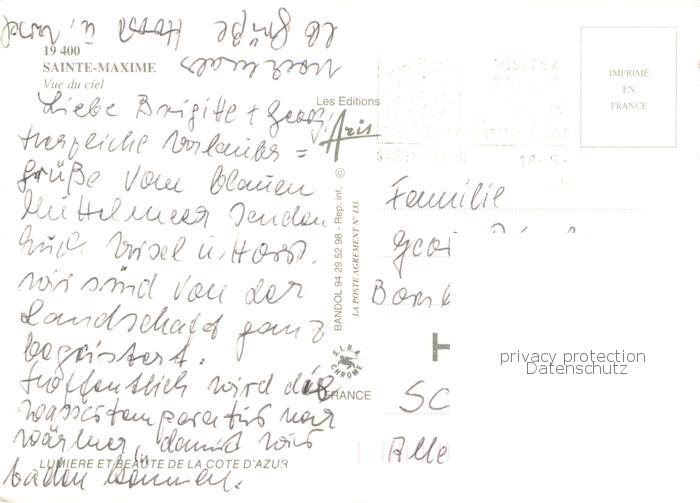 19 400
SAINTE-MAXIME
Vue du ciel
Liebe Brigitte + Georg,
herzliche Urlaubs =
grüße vom blauen
Mittelmeer senden
Euch Ursel u. Horst.
wir sind von der
Landschaft ganz
begeistert.
Hoffentlich wird die
Wassertemperatur noch
wärmer, damit wir
baden können.
nochmals
lb Grüße Horst u. Ursel
LUMIERE ET BEAUTE DE LA COTE D'AZUR
Les Editions
Aris
BANDOL 94 29 52 98 - Rep. int. ©
LA POSTE AGREMENT N° 133
S.I.R.A.
CHROME
FRANCE
VISITEZ
IMPRIMÉ
EN
FRANCE
Familie
Geor
SC
Alle
privacy protection
Datenschutz